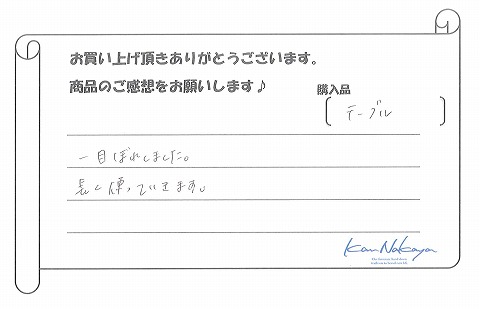 お買い上げ頂きありがとうございます。
商品のご感想をお願いします♪
購入品
テーブル
一目ぼれしました。
長く使っていきます。
Kan Nakaya